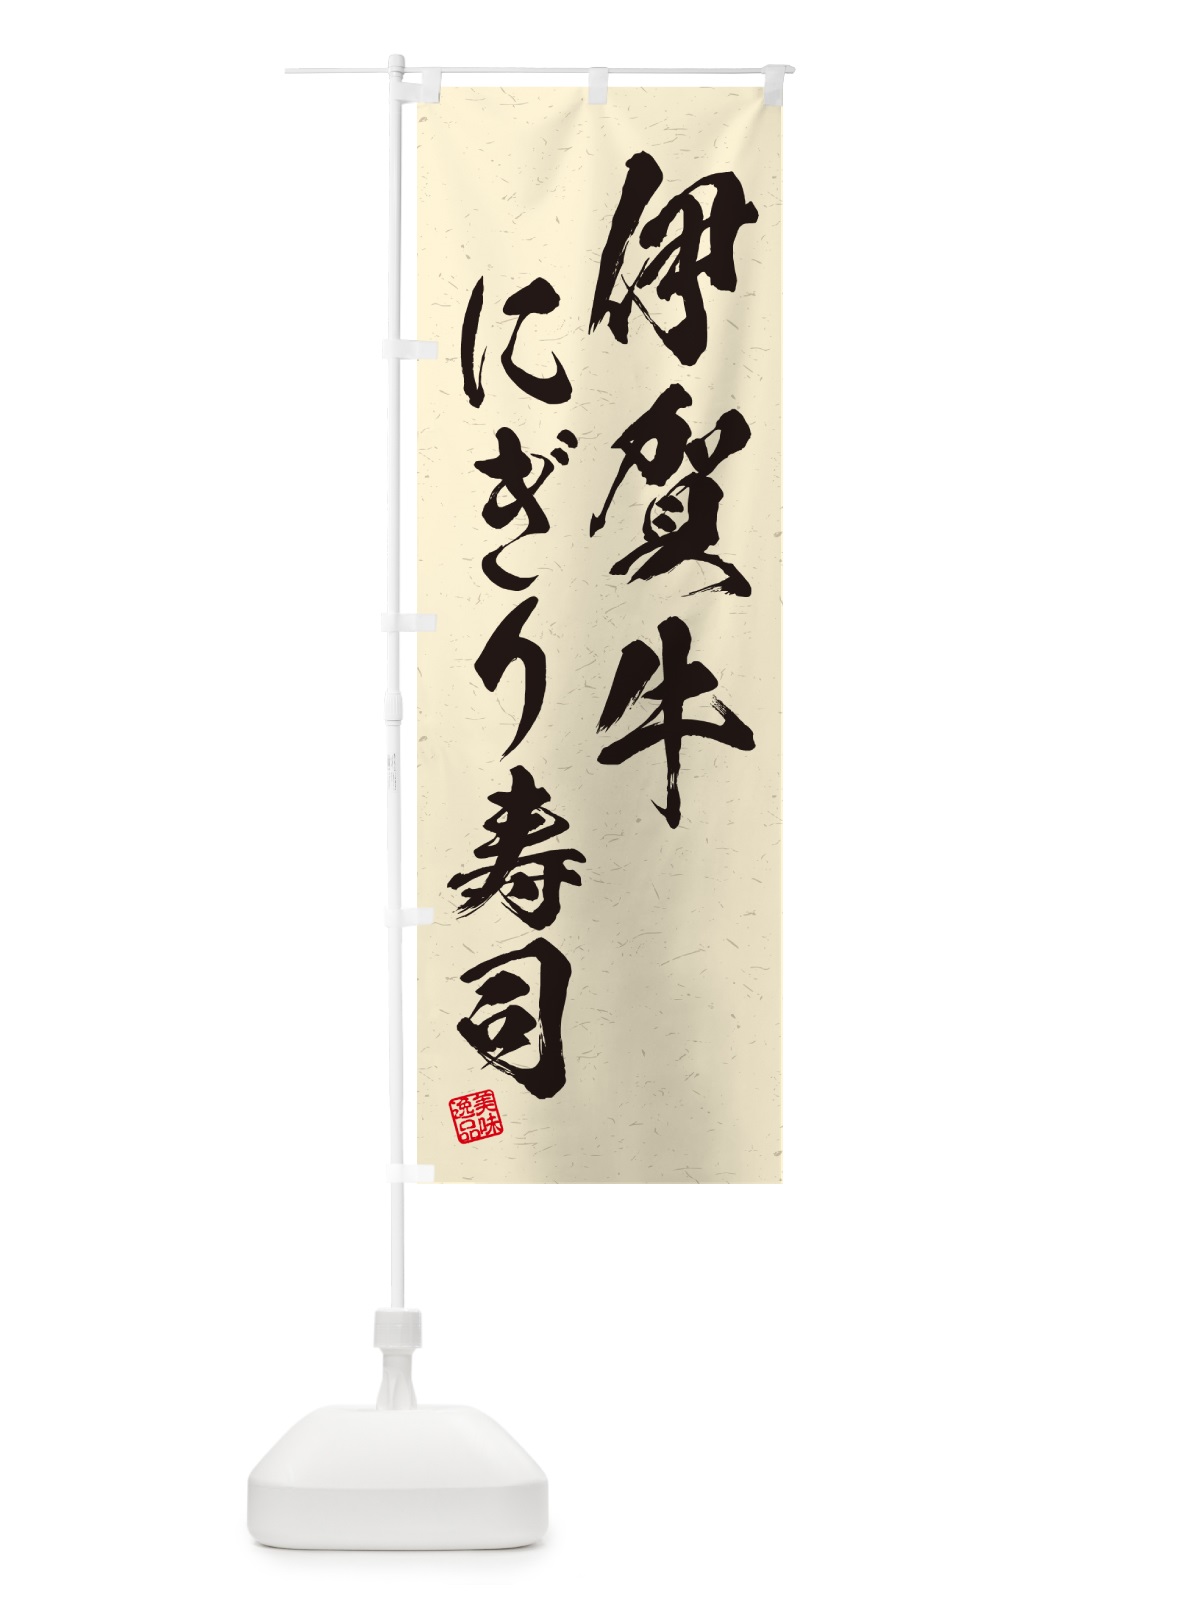 伊賀牛
にぎり寿司
美味
逸品